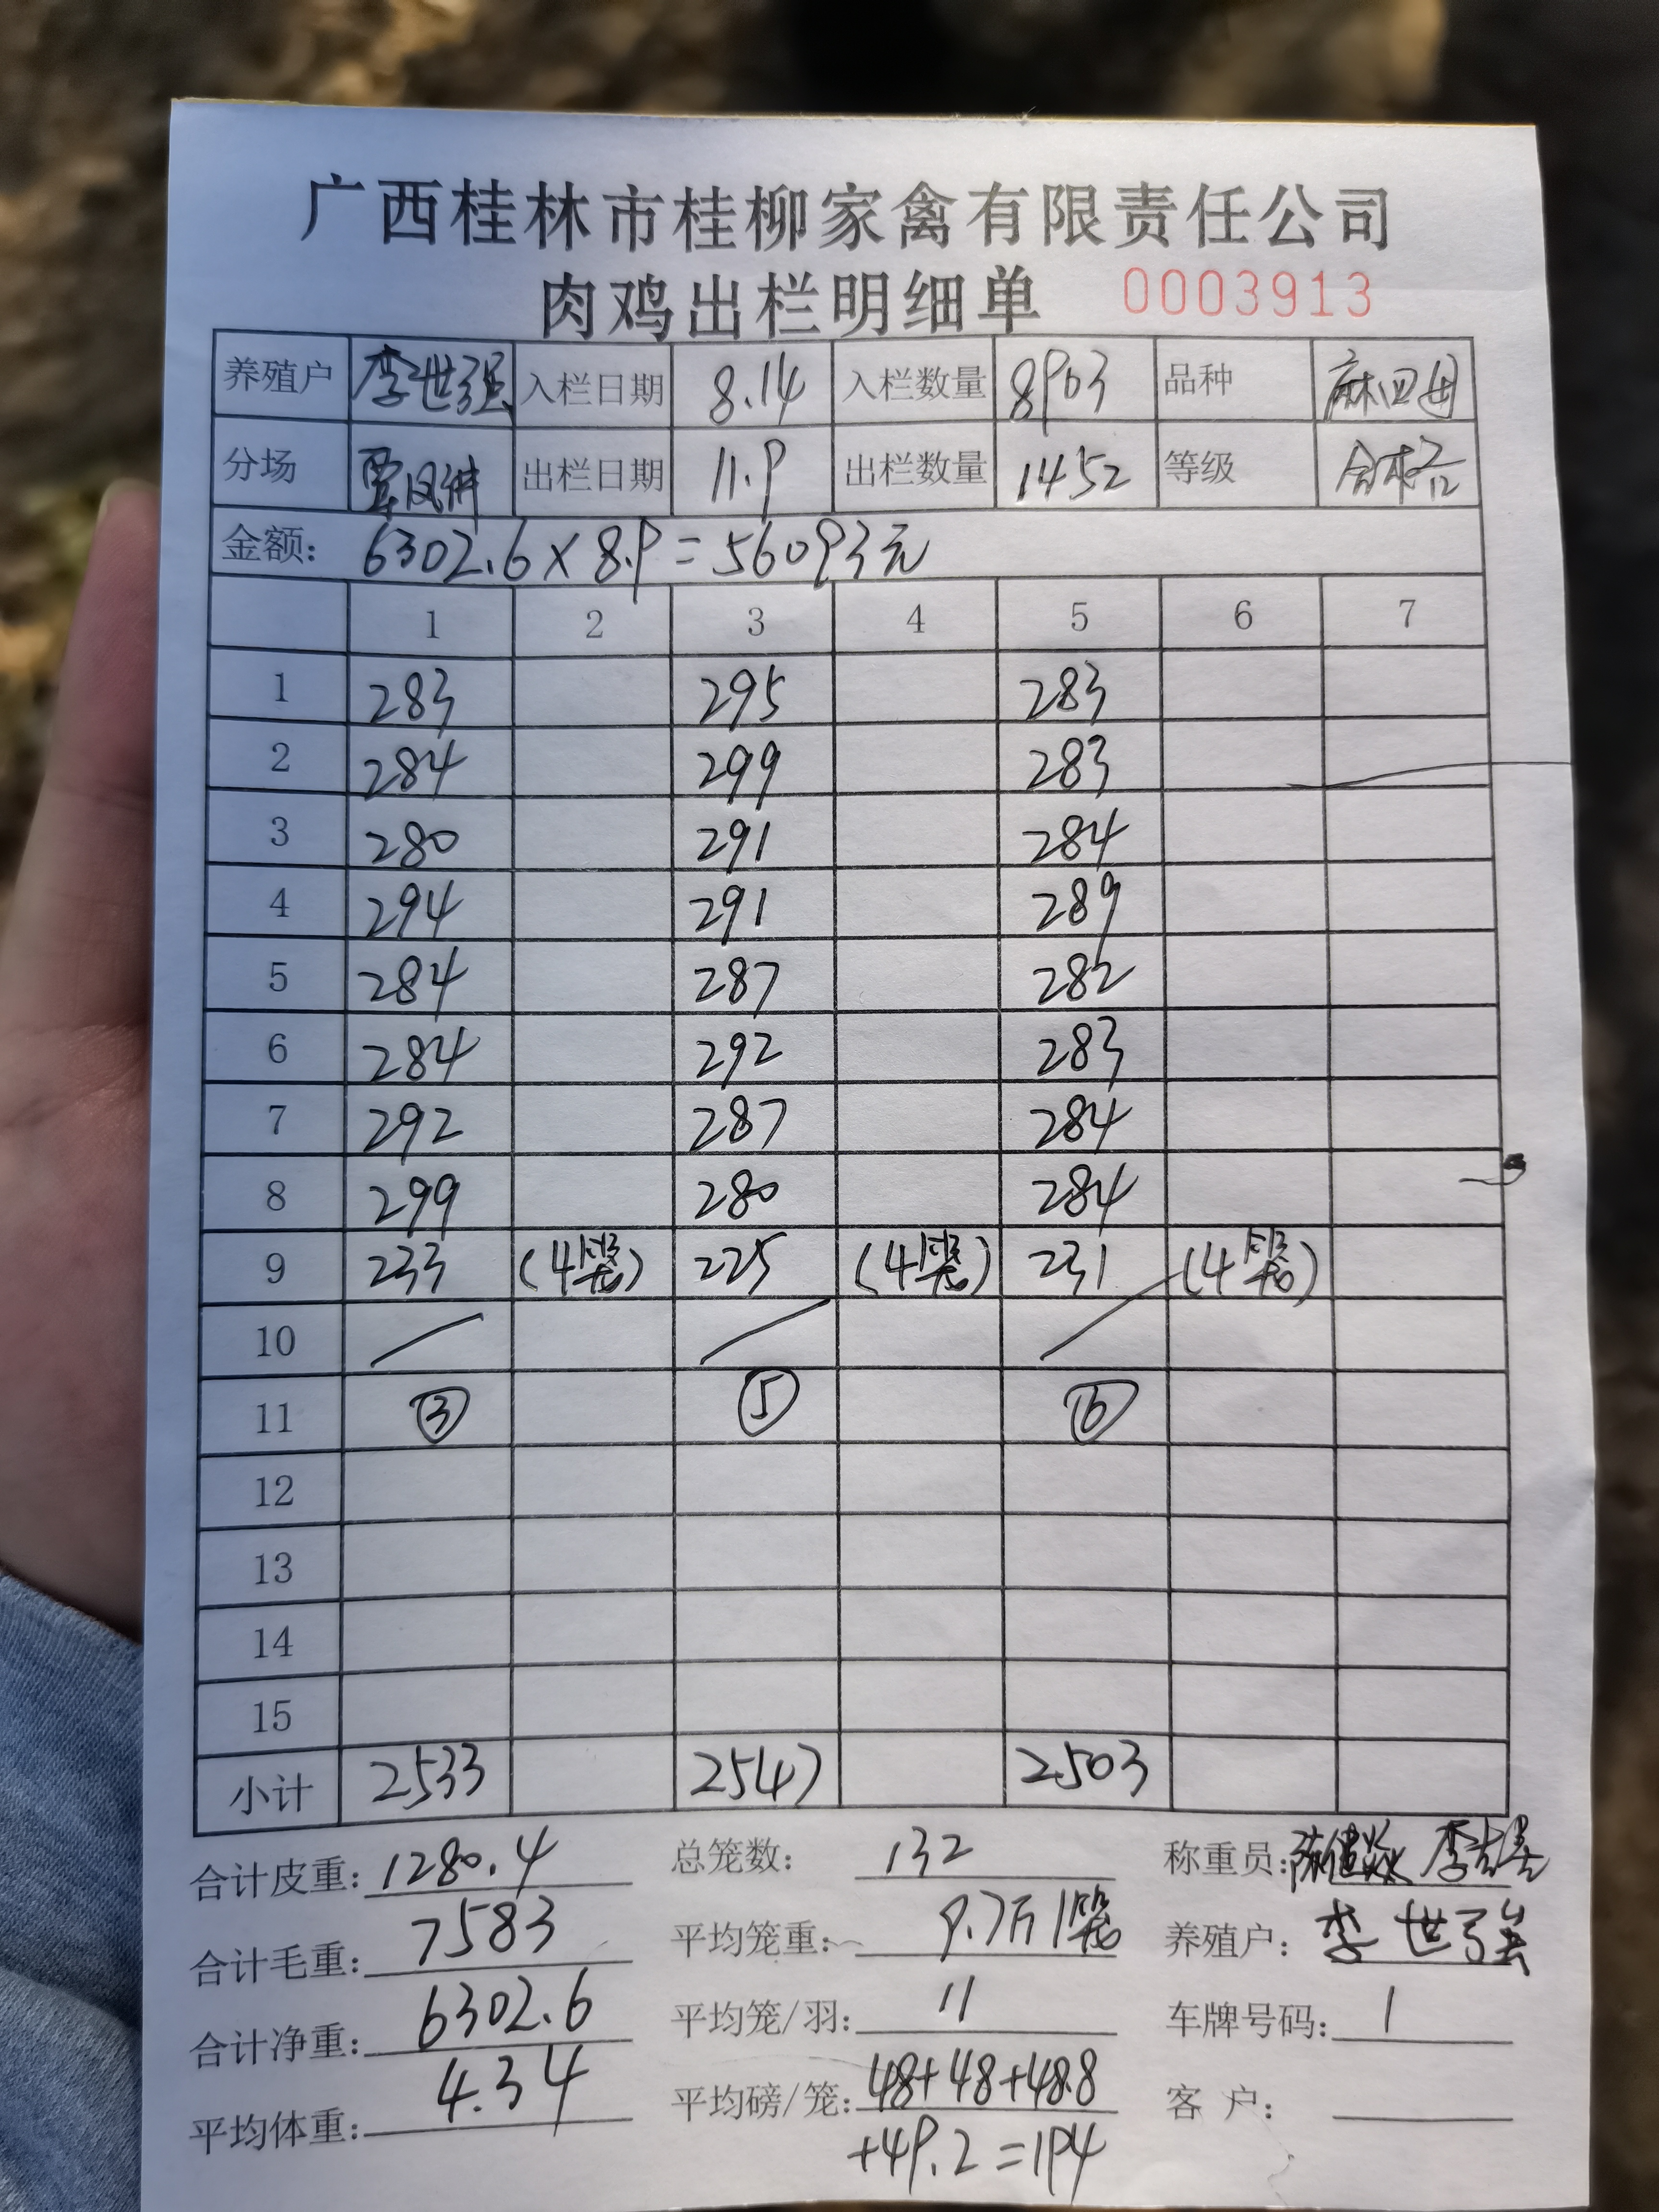 广西桂林市桂柳家禽有限责任公司
肉鸡出栏明细单 0003913
养殖户 李世强 入栏日期 8.14 入栏数量 8903 品种
分场 覃凤 出栏日期 11.9 出栏数量 1452 等级 合格
金额: 6302.6×8.9=56093元
1 2 3 4 5 6 7
1 283 295 283
2 284 299 283
3 280 291 284
4 294 291 289
5 284 287 282
6 284 292 283
7 292 287 284
8 299 280 284
9 233 (4笼) 225 (4笼) 231 (4笼)
10
11 ③ ⑤ ⑥
12
13
14
15
小计 2533 2547 2503
合计皮重: 1280.4 总笼数: 132 称重员:
合计毛重: 7583 平均笼重: 9.7斤/笼 养殖户: 李世强
合计净重: 6302.6 平均笼/羽: 11 车牌号码: 1
平均体重: 4.34 平均磅/笼: 48+48+48.8 客户:
+49.2=194